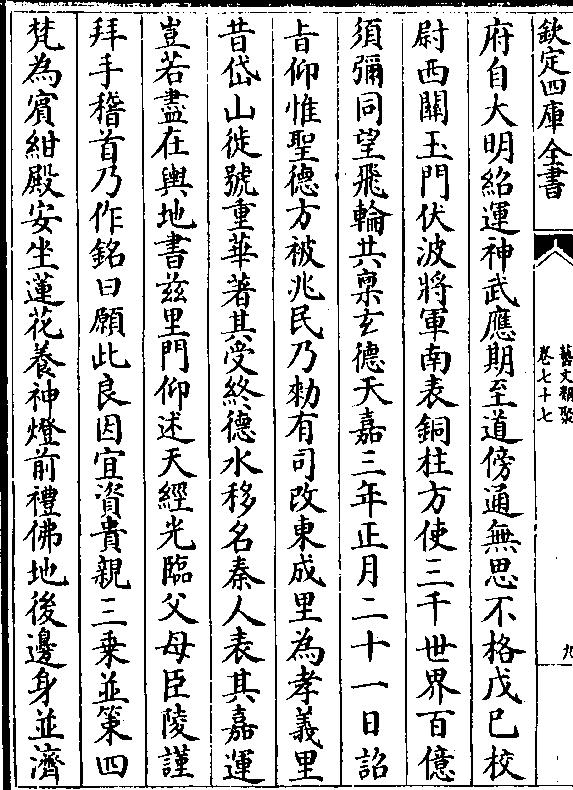 欽定四庫全書
藝文類聚
卷七十七
九
府自大明紹運神武應期至道傍通無思不格戊已校
尉西關玉門伏波將軍南表銅柱方使三千世界百億
須彌同望飛輪共稟玄德天嘉三年正月二十一日詔
㫖仰惟聖德方被兆民乃勑有司改東成里為孝義里
昔岱山徙號重華著其受終德水移名秦人表其嘉運
豈若盡在輿地書兹里門仰述天經光臨父母臣陵謹
拜手稽首乃作銘曰願此良因宜資貴親三乗並策四
梵為賓紺殿安坐蓮花養神燈前禮佛地後邊身並濟